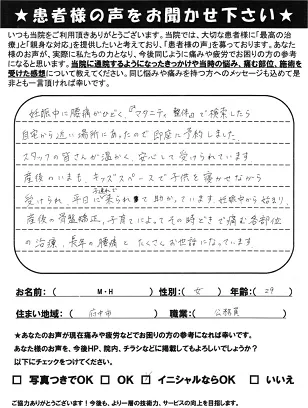 ★患者様の声をお聞かせ下さい★
いつも当院をご利用頂きありがとうございます。当院では、大切な患者様に「最高の治
療」と「親身な対応」を提供したいと考えており、「患者様の声」を募っております。あなた
様のお声が、実際に私たちの力となり、今後同じように痛みや疲労でお困りの方の参考
になると思います。当院に通院するようになったきっかけや当時の悩み、痛む部位、施術を
受けた感想について教えてください。同じ悩みや痛みを持つ方へのメッセージも込めて是
非とも一言頂ければ幸いです。
妊娠中に腰痛がひどく、『マタニティ整体』で検索したら
自宅から近い場所にあったので即座に予約しました
スタッフの皆さんが温かく、安心して受けられています
産後のいまも、キッズスペースで子供を寝かせながら
受けられ、平日に子連れで来られて助かっています。妊娠中から始まり、
産後の骨盤矯正、子育てによってその時どきで痛む各部位
の治療、長年の腰痛とたくさんお世話になっています
お名前：（ M・H ）性別：（ 女 ）年齢：（ 29 ）
住まい地域：（ 府中市 ）職業：（ 公務員 ）
★あなたのお声が現在痛みや疲労などでお困りの方の参考になれば幸いです。
あなた様のお声を、今後HP、院内、チラシなどに掲載してもよろしいでしょうか？
以下にチェックをつけてください。
□ 写真つきでOK □ OK ☑ イニシャルならOK □ いいえ
ご協力ありがとうございます！今後も、より一層の技術力、サービスの向上を目指します。